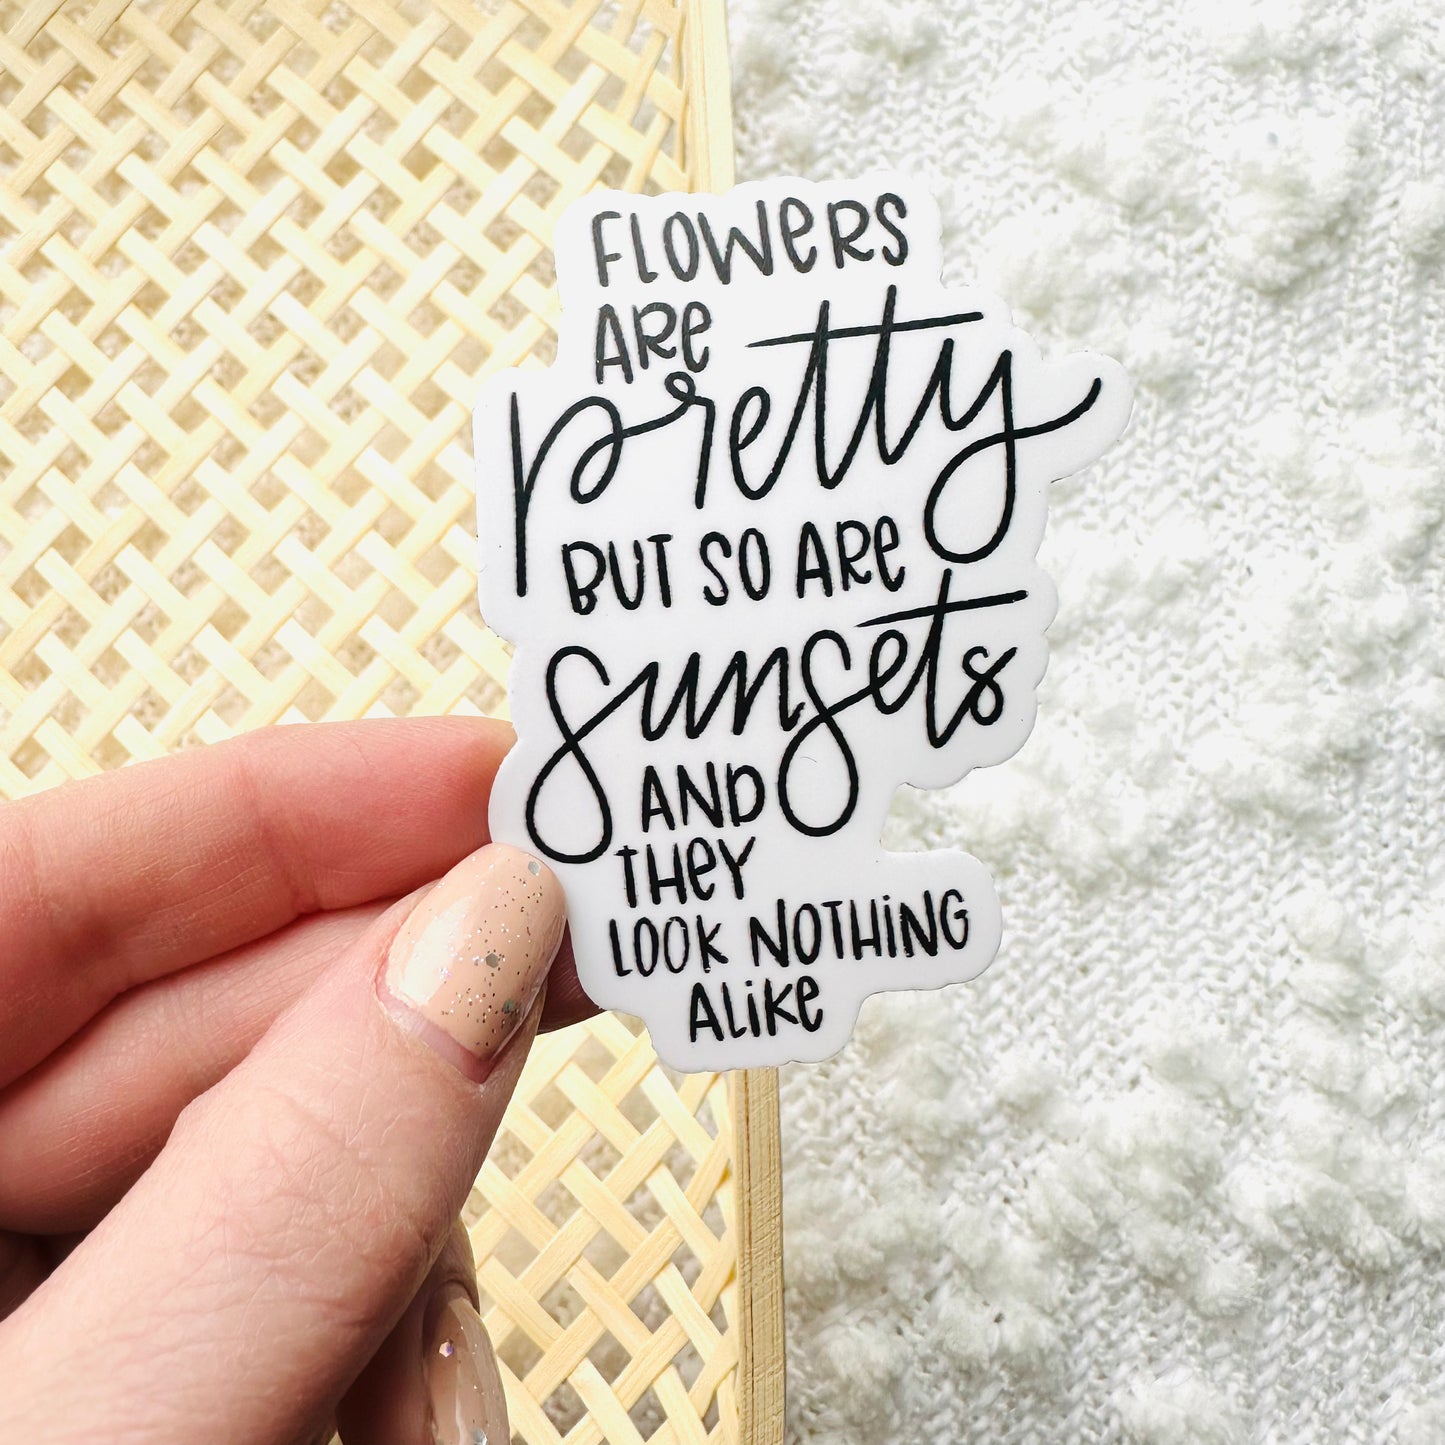 FLOWERS
ARE
pretty
BUT SO ARE
sunsets
AND
THEY
LOOK NOTHING
ALIKE